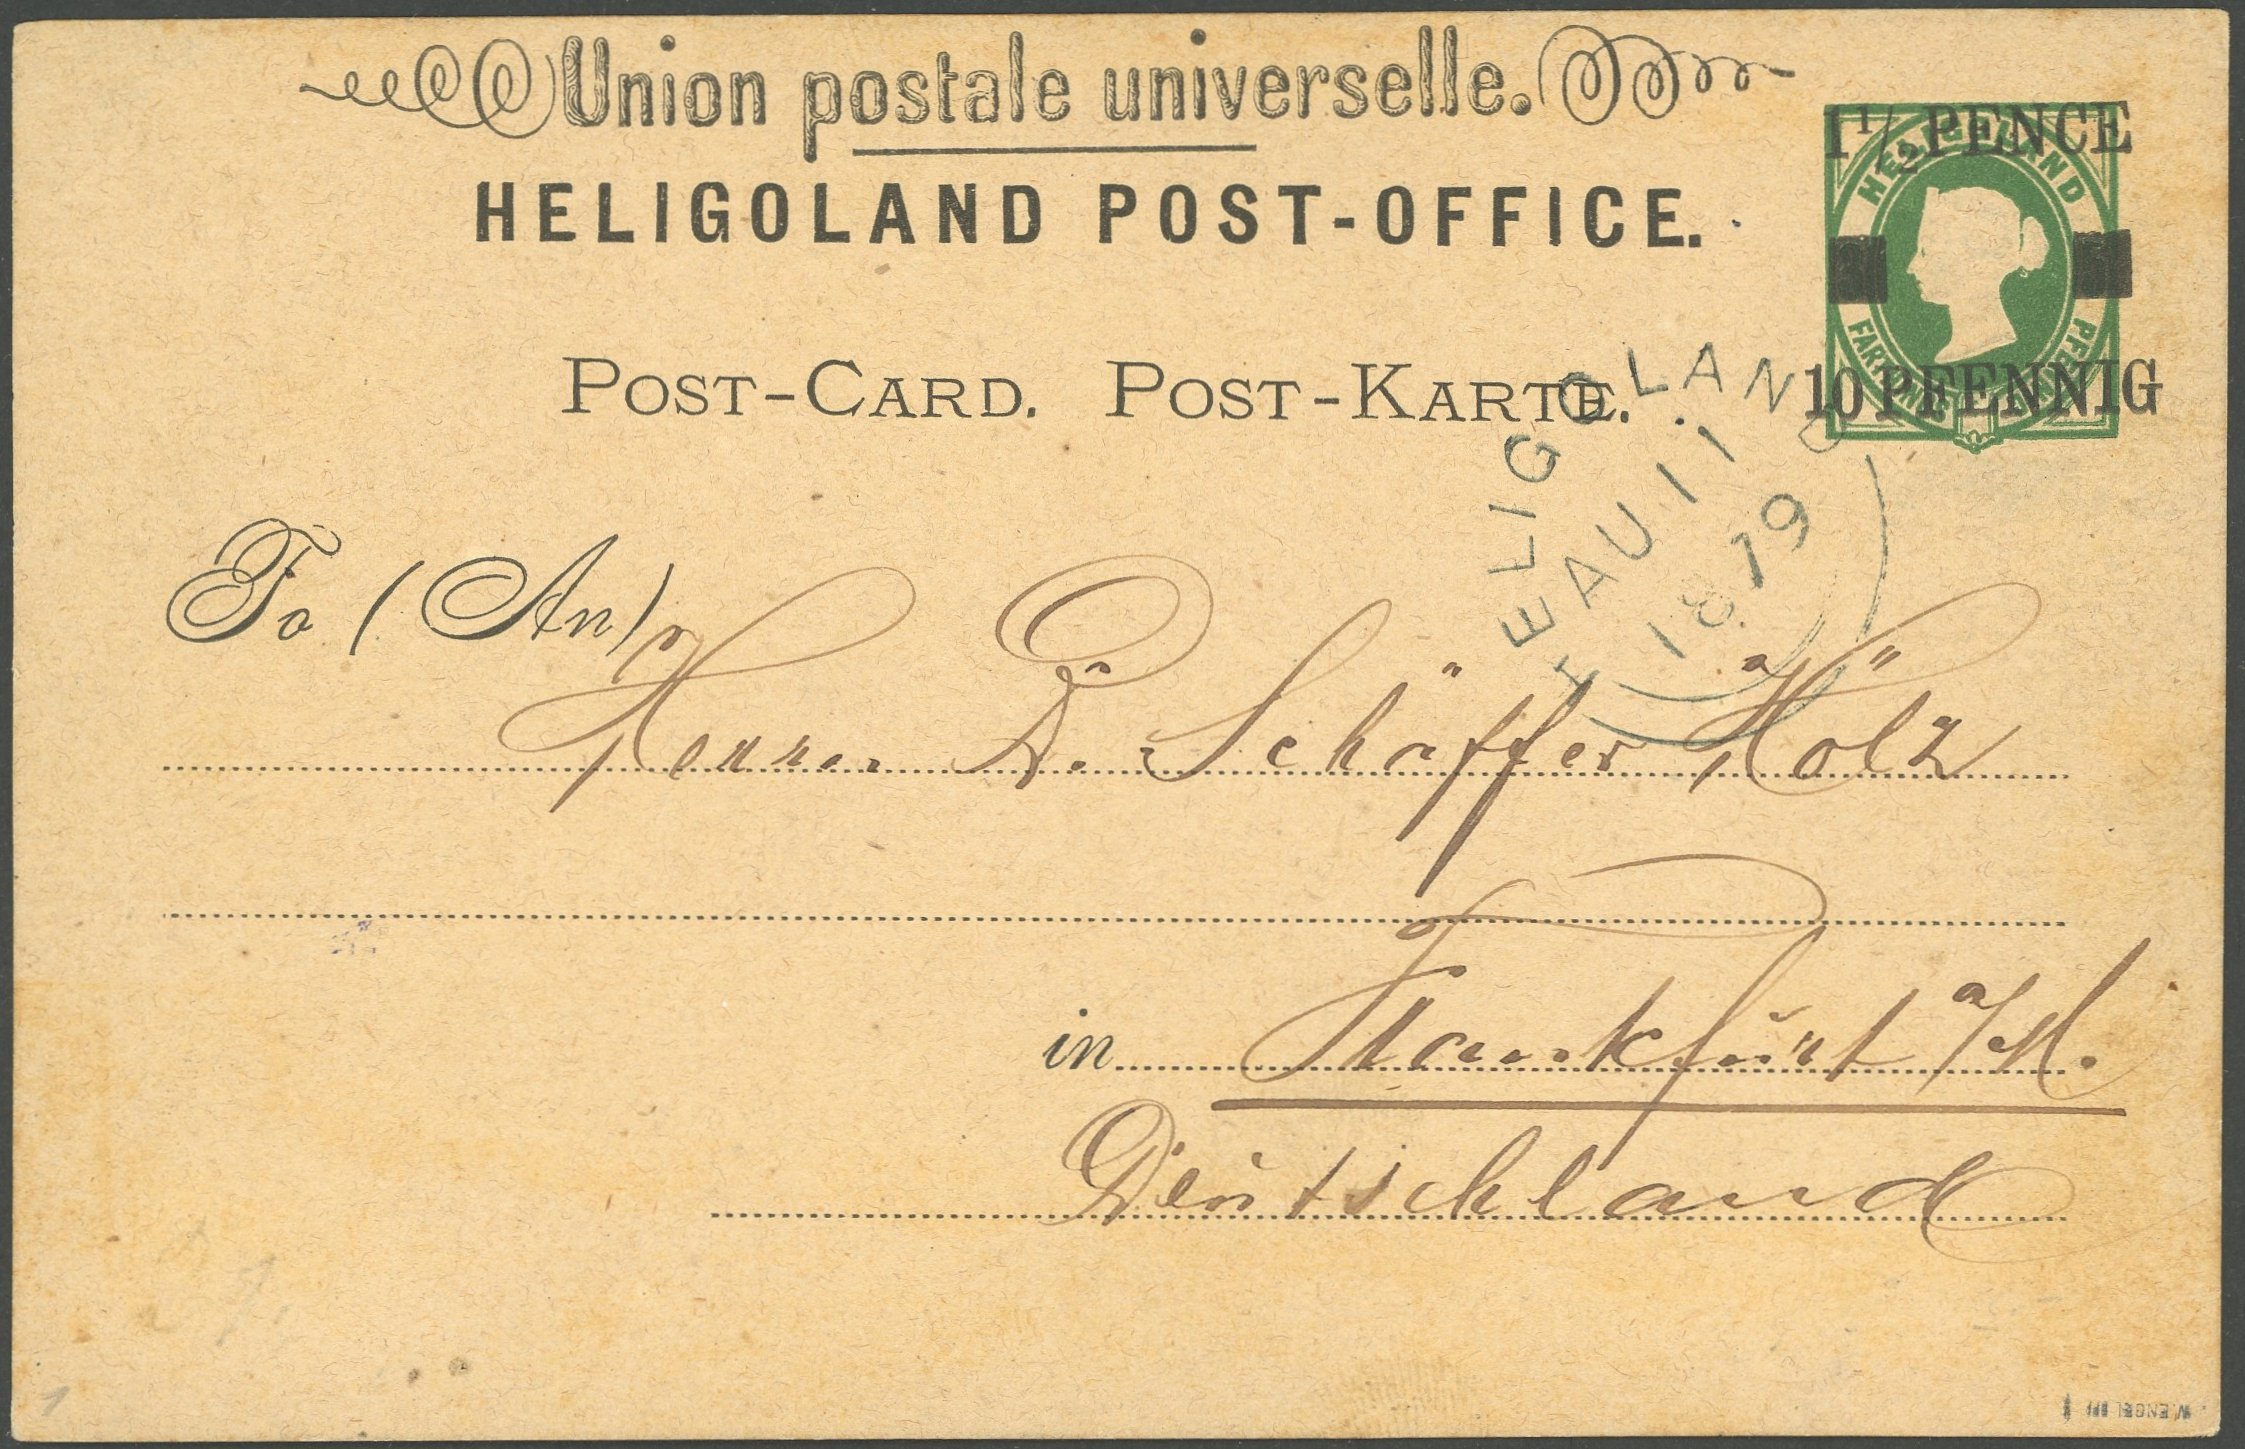 Union postale universelle.
HELIGOLAND POST-OFFICE.
1 1/2 PENCE
HELIGOLAND
FARTHINGS PFENNIG
10 PFENNIG
POST-CARD. POST-KARTE.
HELIGOLAND
AU 11
1879
To (An)
Herrn D. Schäffer Hölz
in Frankfurt a/M.
Deutschland
W. ENGEL